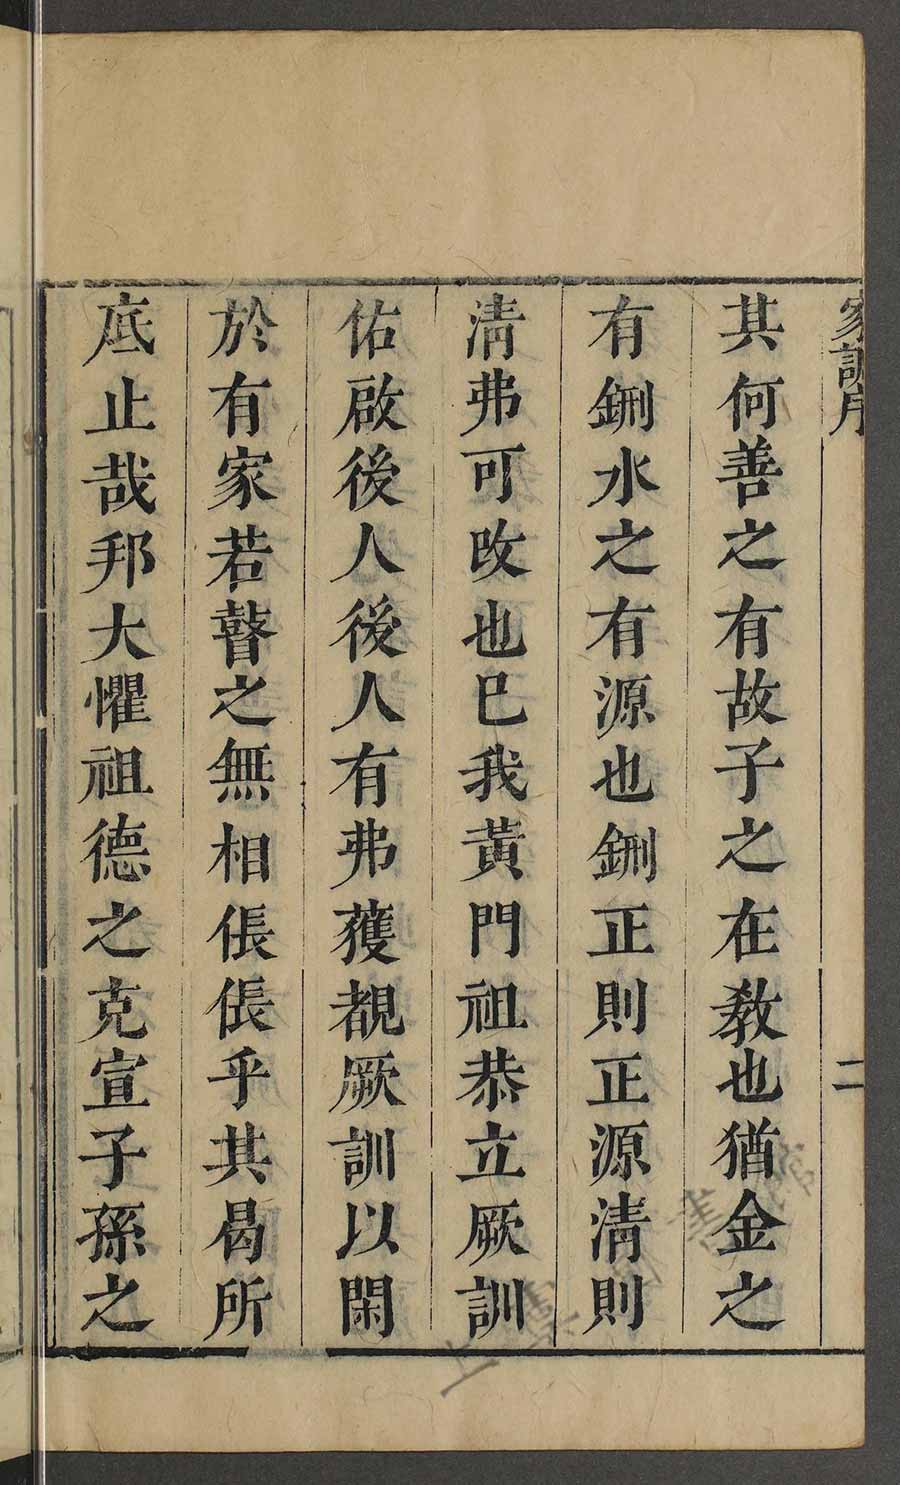 家訓序
二
其何善之有故子之在教也猶金之
有鉶水之有源也鉶正則正源清則
清弗可改也已我黃門祖恭立厥訓
佑啟後人後人有弗獲覩厥訓以閑
於有家若瞽之無相倀倀乎其曷所
底止哉邦大懼祖德之克宣子孫之